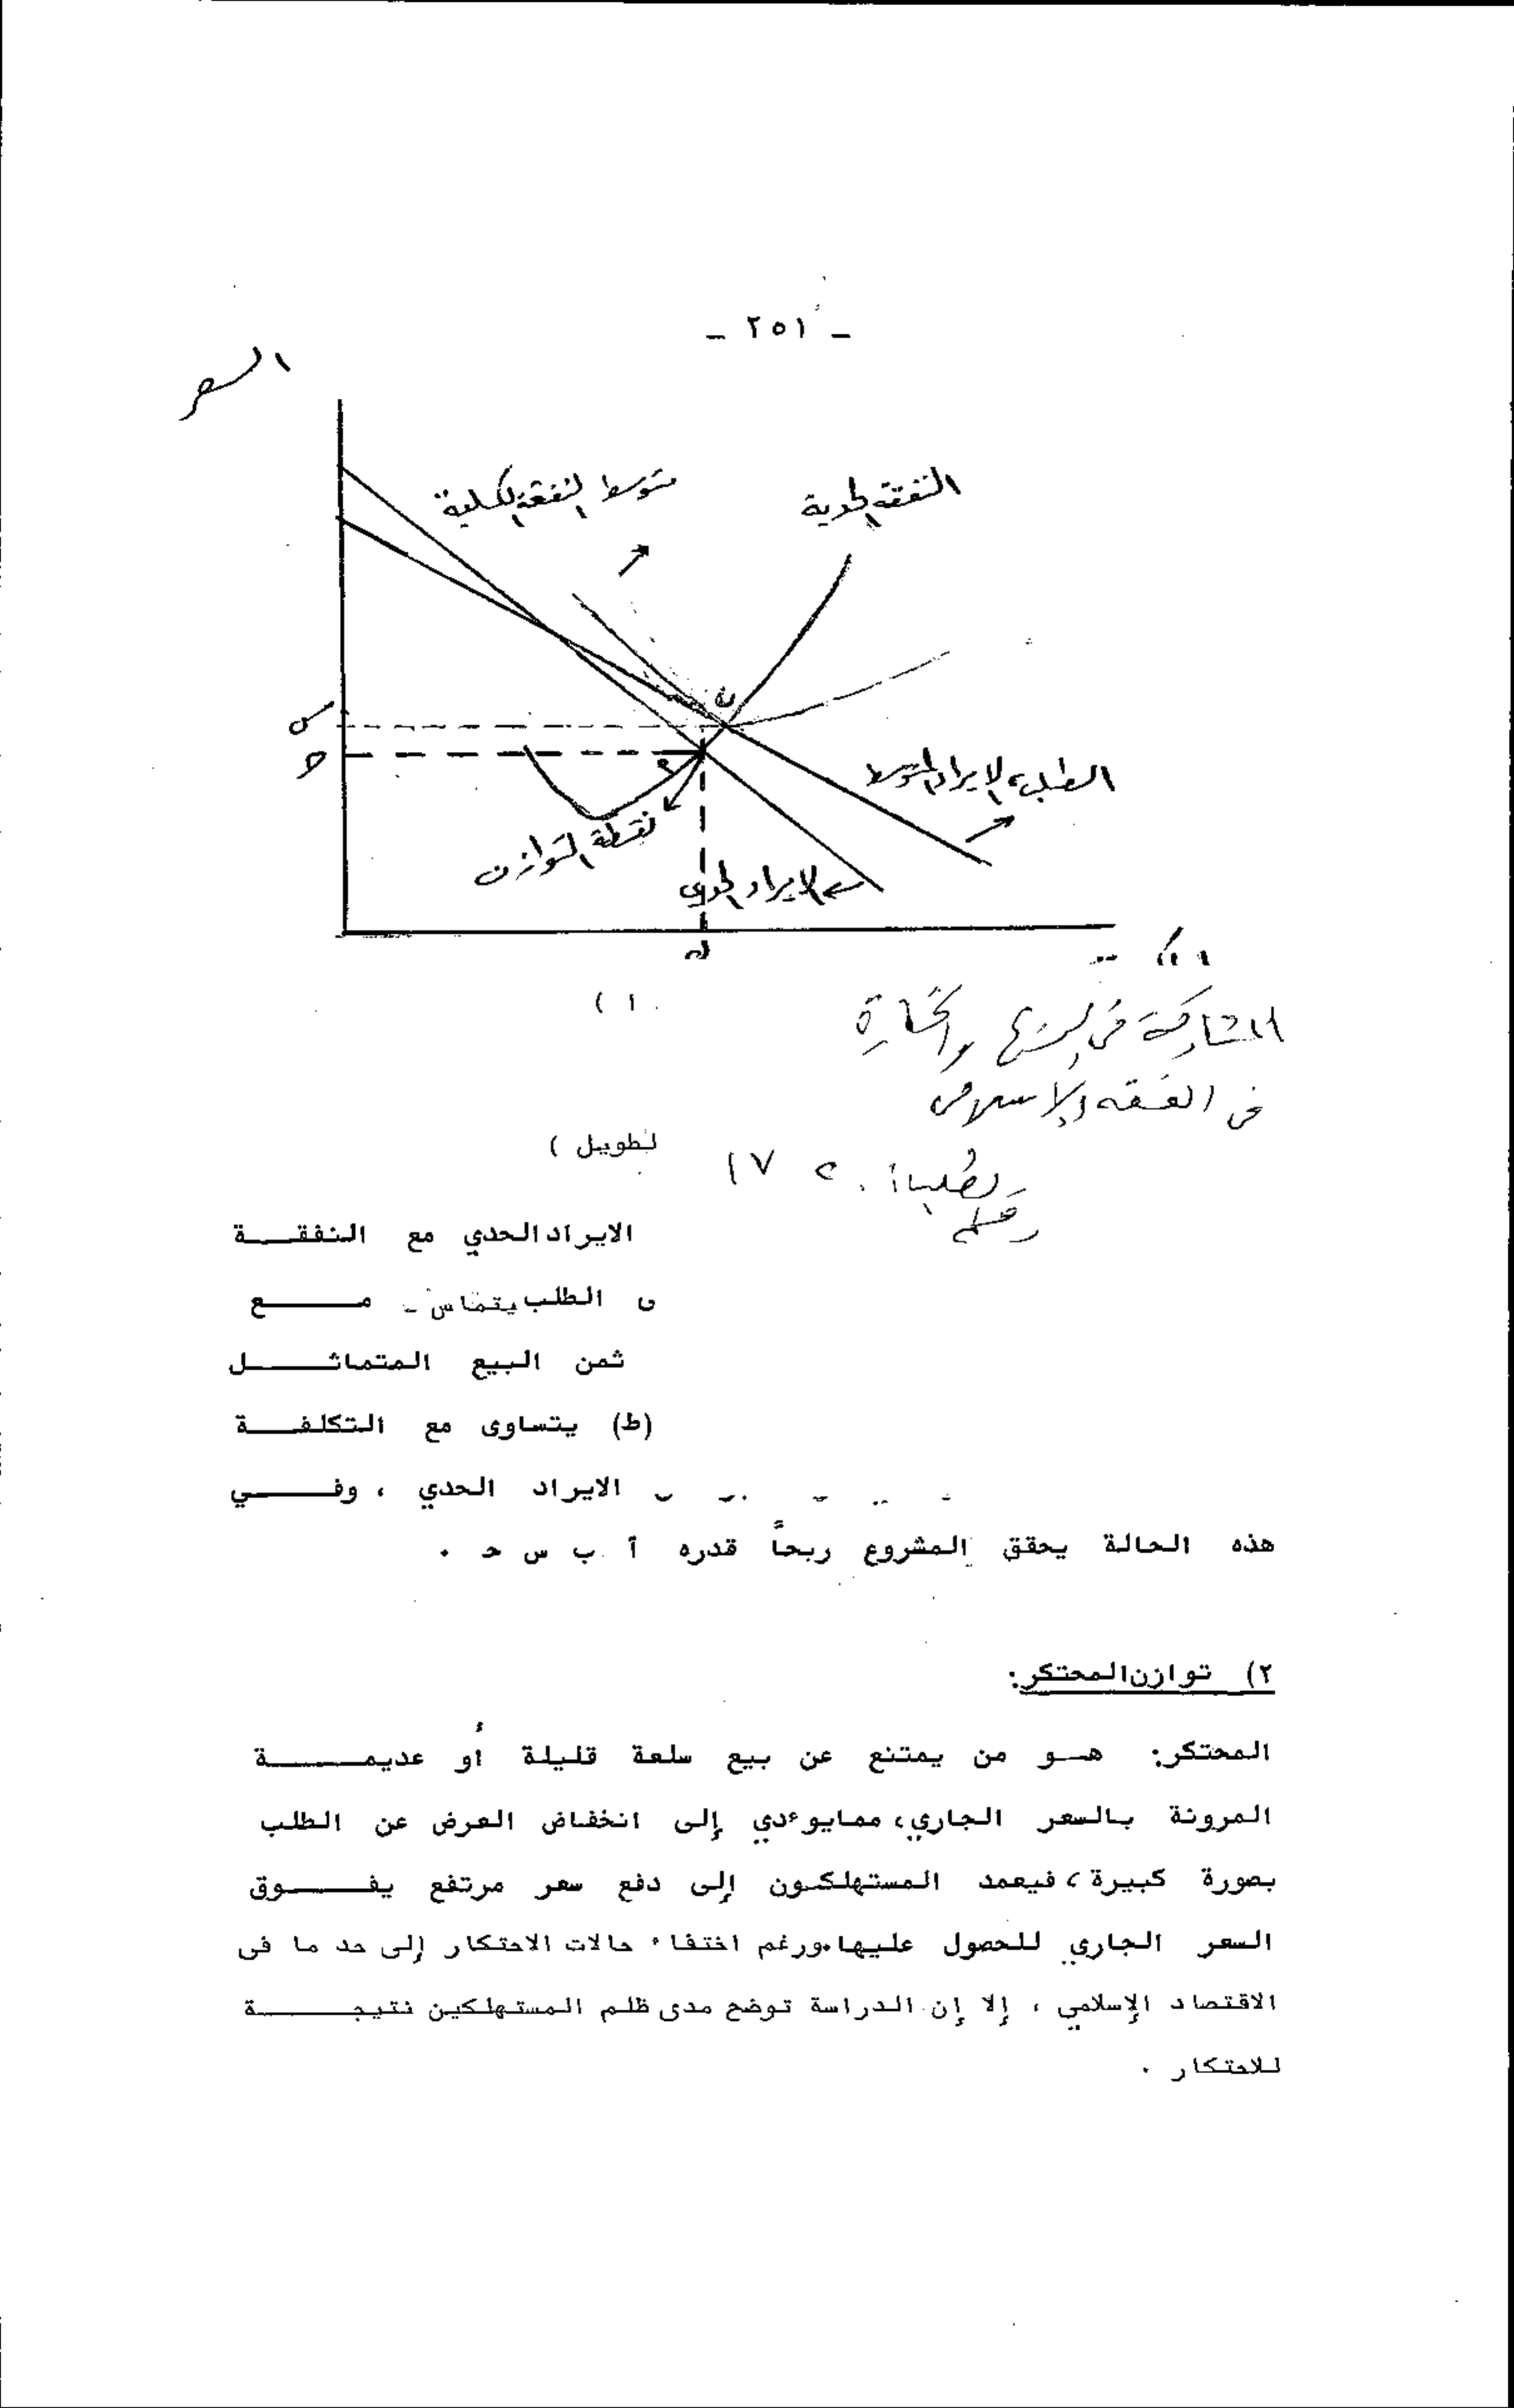 - ٢٥١ -
السعر
متوسط النفقة الكلية
النفقة الحدية
س
ح
الطلب، الايراد المتوسط
نقطة التوازن
الايراد الحدي
( ١
المشاركة في الربح والخسارة
في الفقه الإسلامي
لطويل )
الايراد الحدي مع النفقــة
ى الطلب يتماس مــــع
ثمن البيع المتماثـــل
(ط) يتساوى مع التكلفــة
الايراد الحدي ، وفـــي
هذه الحالة يحقق المشروع ربحاً قدره أ ب س ح .
٢) توازن المحتكر:
المحتكر: هـو من يمتنع عن بيع سلعة قليلة أو عديمــــة
المرونة بالسعر الجاري، ممايوءدي إلى انخفاض العرض عن الطلب
بصورة كبيرة ، فيعمد المستهلكون إلى دفع سعر مرتفع يفـــوق
السعر الجاري للحصول عليها.ورغم اختفاء حالات الاحتكار إلى حد ما فى
الاقتصاد الإسلامي ، إلا إن الدراسة توضح مدى ظلم المستهلكين نتيجــــة
للاحتكار .